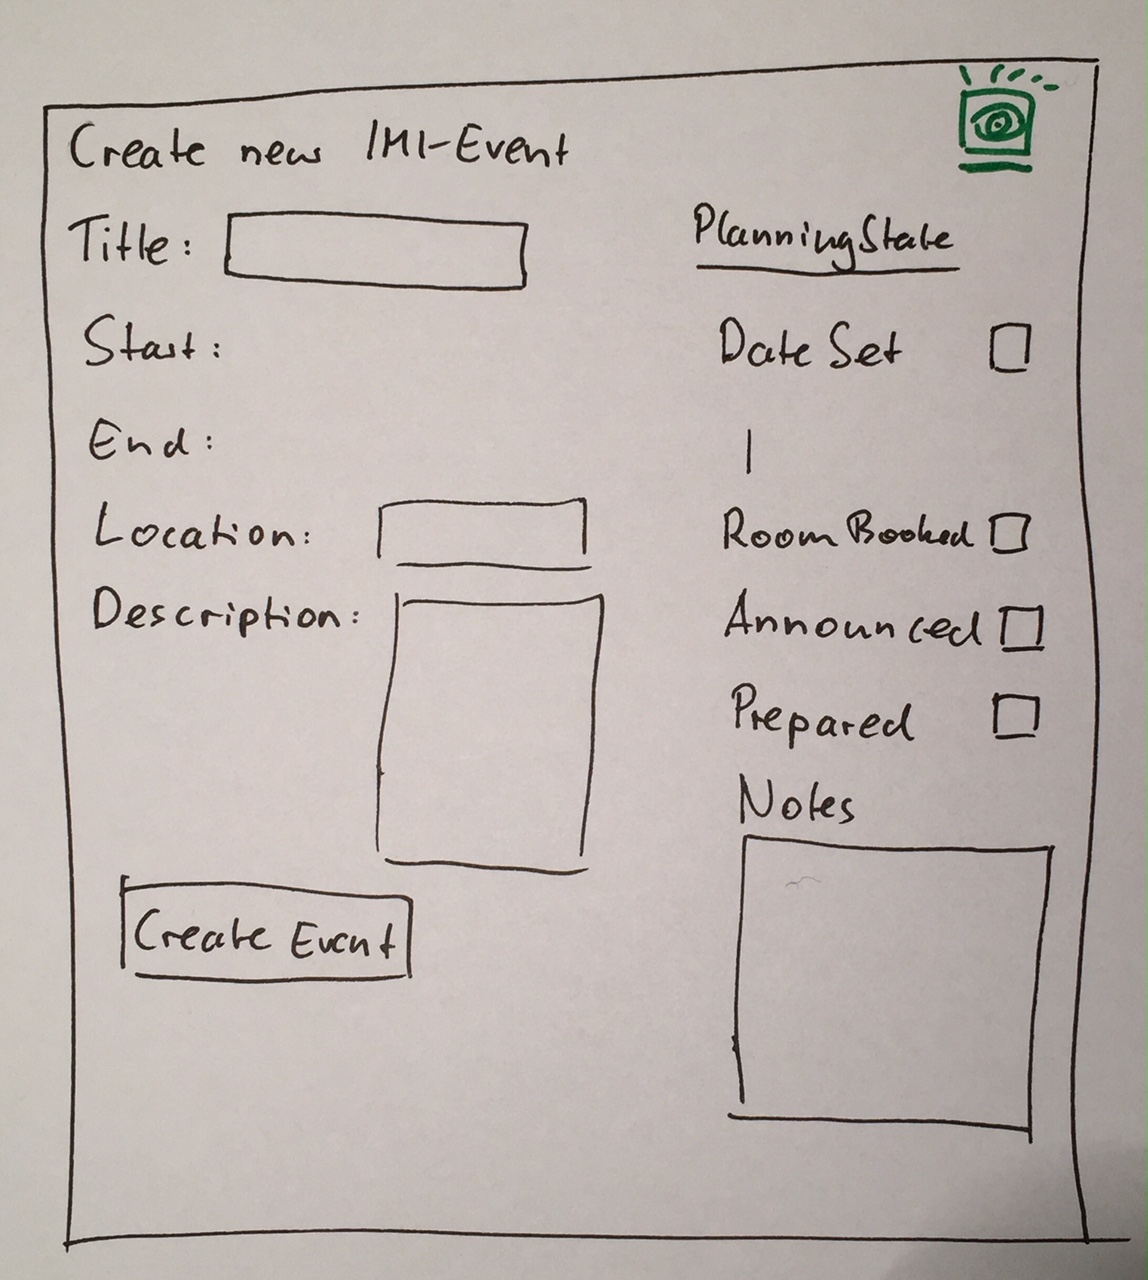 Create new IMI-Event
Title:
Start:
End:
Location:
Description:
Create Event
PlanningState
Date Set
|
Room Booked
Announced
Prepared
Notes